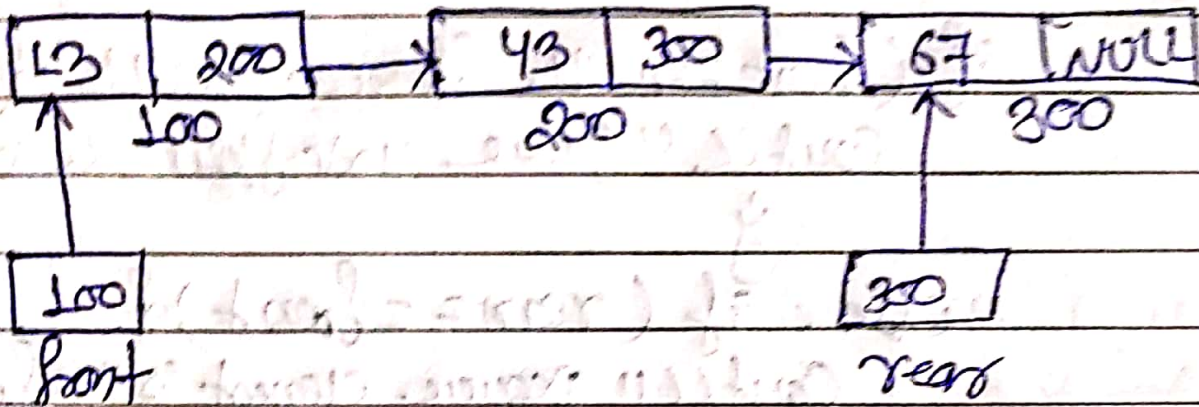 13 200 43 300 67 NULL
100 200 300
100 300
front rear